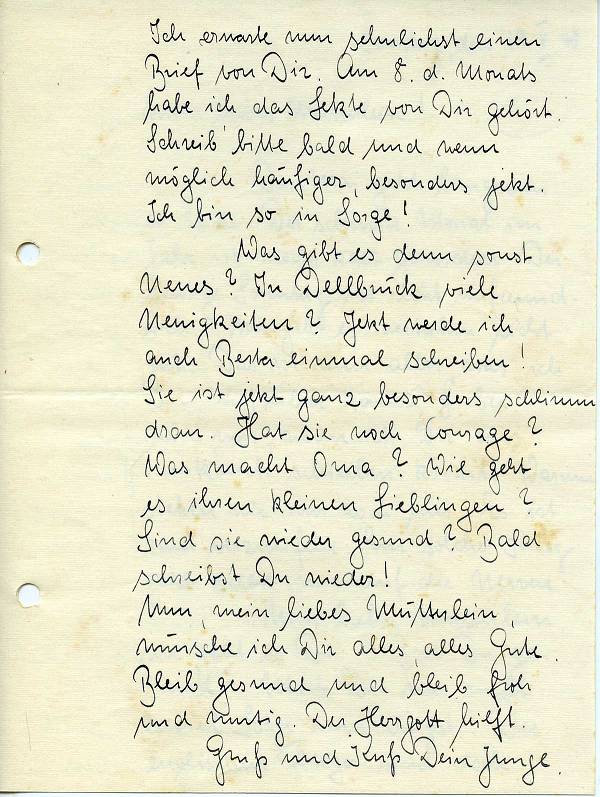 Ich erwarte nun sehnlichst einen
Brief von Dir. Am 8. d. Monats
habe ich das letzte von Dir gehört.
Schreib' bitte bald und wenn
möglich häufiger, besonders jetzt.
Ich bin so in Sorge!
Was gibt es denn sonst
Neues? In Dellbrück viele
Neuigkeiten? Jetzt werde ich
auch Berta einmal schreiben!
Sie ist jetzt ganz besonders schlimm
dran. Hat sie noch Courage?
Was macht Oma? Wie geht
es ihren kleinen Lieblingen?
Sind sie wieder gesund? Bald
schreibst Du wieder!
Nun, mein liebes Mütterlein,
wünsche ich Dir alles, alles Gute.
Bleib gesund und bleib froh
und mutig. Der Herrgott hilft.
Gruß und Kuß Dein Junge.